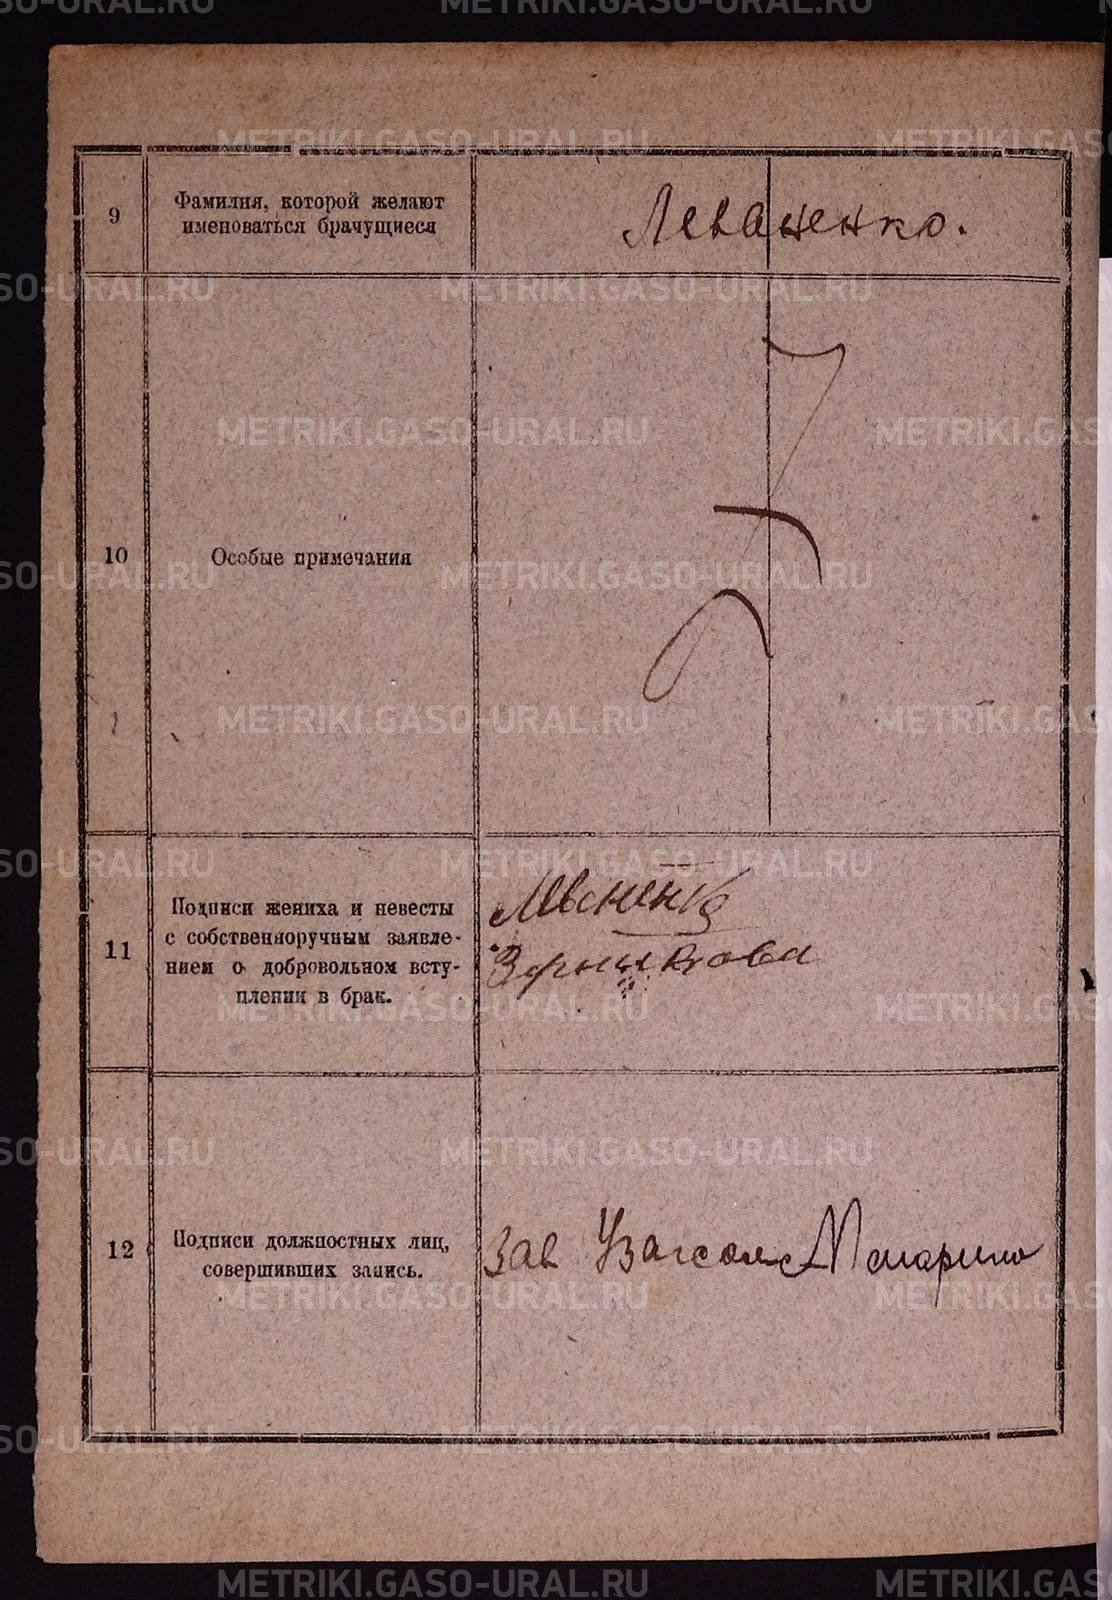 9
Фамилия, которой желают
именоваться брачущиеся
Леваненко.
10
Особые примечания
11
Подписи жениха и невесты
с собственноручным заявле-
нием о добровольном всту-
плении в брак.
12
Подписи должностных лиц,
совершивших запись.
Зав Узагсом
METRIKI.GASO-URAL.RU